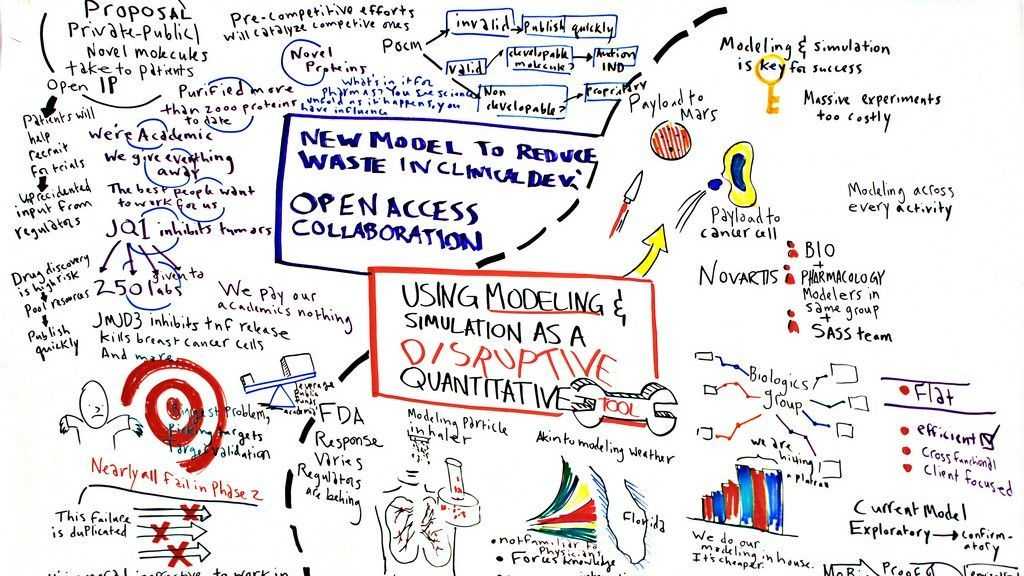 Proposal
Private-Public
Novel molecules
take to patients
Open IP
Patients will
help
recruit
for trials
input from
regulators
Drug discovery
is high risk
Pool resources
Publish
quickly
Pre-competitive efforts
will catalyze competitive ones
Novel
Proteins
Purified more
than 2000 proteins
to date
We're Academic
We give everything
away
The best people want
to work for us
JQ1 inhibits tumors
given to
250 labs
We pay our
academics nothing
JMJD3 inhibits tnf release
kills breast cancer cells
And more
What's in it for
pharmas? You see science
unfold as it happens, you
have influence
Pocm
invalid
Publish quickly
valid
developable
molecule?
IND
Non
developable?
Proprietary
NEW MODEL TO REDUCE
WASTE IN CLINICAL DEV.
OPEN ACCESS
COLLABORATION
USING MODELING &
SIMULATION AS A
DISRUPTIVE
QUANTITATIVE
TOOL
Payload to
Mars
Payload to
cancer cell
Modeling & simulation
is key for success
Massive experiments
too costly
Modeling across
every activity
NOVARTIS
BIO
+
PHARMACOLOGY
Modelers in
same group
+
SASS team
Biggest problem,
Picking targets
Target validation
Nearly all fail in Phase 2
This failure
is duplicated
leverage
Public
funds
academic
FDA
Response
Varies
Regulators
are behing
Modeling particle
inhaler
Akin to modeling weather
Florida
• not familiar to
Physician
• Forces knowledge
Biologics
group
we are
hiring
We do our
modeling in house.
It's cheaper
• Flat
• efficient
• Cross functional
• Client focused
Current Model
Exploratory → confirm-
atory